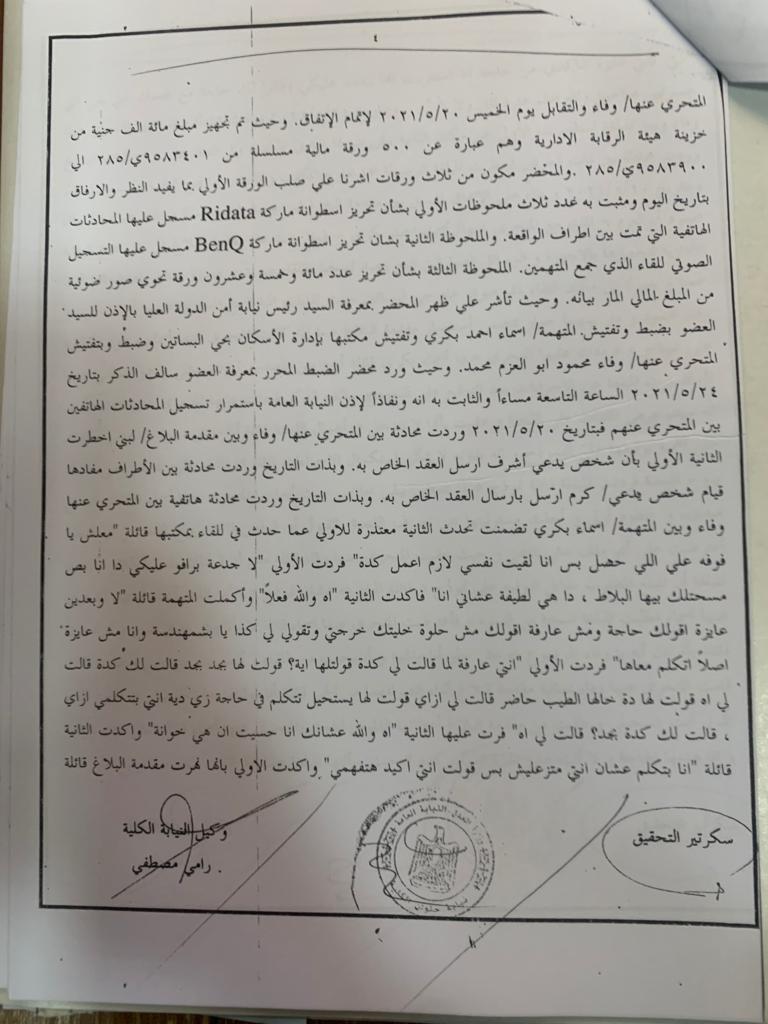 ٤
المتحري عنها/ وفاء والتقابل يوم الخميس ٢٠٢١/٥/٢٠ لإتمام الإتفاق. وحيث تم تجهيز مبلغ مائة الف جنية من
خزينة هيئة الرقابة الادارية وهم عبارة عن ٥٠٠ ورقة مالية مسلسلة من ٩٥٨٣٤٠١ي/٢٨٥ الي
٩٥٨٣٩٠٠ي/٢٨٥ .والمحضر مكون من ثلاث ورقات اشرنا علي صلب الورقة الأولي بما يفيد النظر والارفاق
بتاريخ اليوم ومثبت به عدد ثلاث ملحوظات الأولي بشأن تحريز اسطوانة ماركة Ridata مسجل عليها المحادثات
الهاتفية التي تمت بين اطراف الواقعة. والملحوظة الثانية بشان تحريز اسطوانة ماركة BenQ مسجل عليها التسجيل
الصوتي للقاء الذي جمع المتهمين. الملحوظة الثالثة بشأن تحريز عدد مائة وخمسة وعشرون ورقة تحوي صور ضوئية
من المبلغ المالي المار بيانه. وحيث تأشر علي ظهر المحضر بمعرفة السيد رئيس نيابة أمن الدولة العليا بالإذن للسيد
العضو بضبط وتفتيش المتهمة/ اسماء احمد بكري وتفتيش مكتبها بإدارة الأسكان بحي البساتين وضبط وبتفتيش
المتحري عنها/ وفاء محمود ابو العزم محمد. وحيث ورد محضر الضبط المحرر بمعرفة العضو سالف الذكر بتاريخ
٢٠٢١/٥/٢٤ الساعة التاسعة مساءاً والثابت به انه ونفاذاً لإذن النيابة العامة بأستمرار تسجيل المحادثات الهاتفين
بين المتحري عنهم فبتاريخ ٢٠٢١/٥/٢٠ وردت محادثة بين المتحري عنها/ وفاء وبين مقدمة البلاغ/ لبني اخطرت
الثانية الأولي بأن شخص يدعي أشرف ارسل العقد الخاص به. وبذات التاريخ وردت محادثة بين الأطراف مفادها
قيام شخص يدعي/ كرم ارسل بارسال العقد الخاص به. وبذات التاريخ وردت محادثة هاتفية بين المتحري عنها
وفاء وبين المتهمة/ اسماء بكري تضمنت تحدث الثانية معتذرة للاولي عما حدث في للقاء بمكتبها قائلة "معلش يا
فوفه علي اللي حصل بس انا لقيت نفسي لازم اعمل كدة" فردت الأولي "لا جدعة برافو عليكي دا انا بص
مسحتلك بيها البلاط ، دا هي لطيفة عشاني انا" فاكدت الثانية "اه والله فعلاً" وأكملت المتهمة قائلة "لا وبعدين
عايزة اقولك حاجة ومش عارفة اقولك مش حلوة خليتك خرجتي وتقولي لي كذا يا بشمهندسة وانا مش عايزة
اصلاً اتكلم معاها" فردت الأولي "انتي عارفة لما قالت لي كدة قولتلها اية؟ قولت لها بجد بجد قالت لك كدة قالت
لي اه قولت لها دة خالها الطيب حاضر قالت لي ازاي قولت لها يستحيل تتكلم في حاجة زي دية انتي بتتكلمي ازاي
، قالت لك كدة بجد؟ قالت لي اه" فرت عليها الثانية "اه والله عشانك انا حسيت ان هي خوانة" واكدت الثانية
قائلة "انا بتكلم عشان انتي متزعليش بس قولت انتي اكيد هتفهمي" واكدت الأولي بالها نهرت مقدمة البلاغ قائلة
سكرتير التحقيق
وكيل النيابة الكلية
رامي مصطفي .